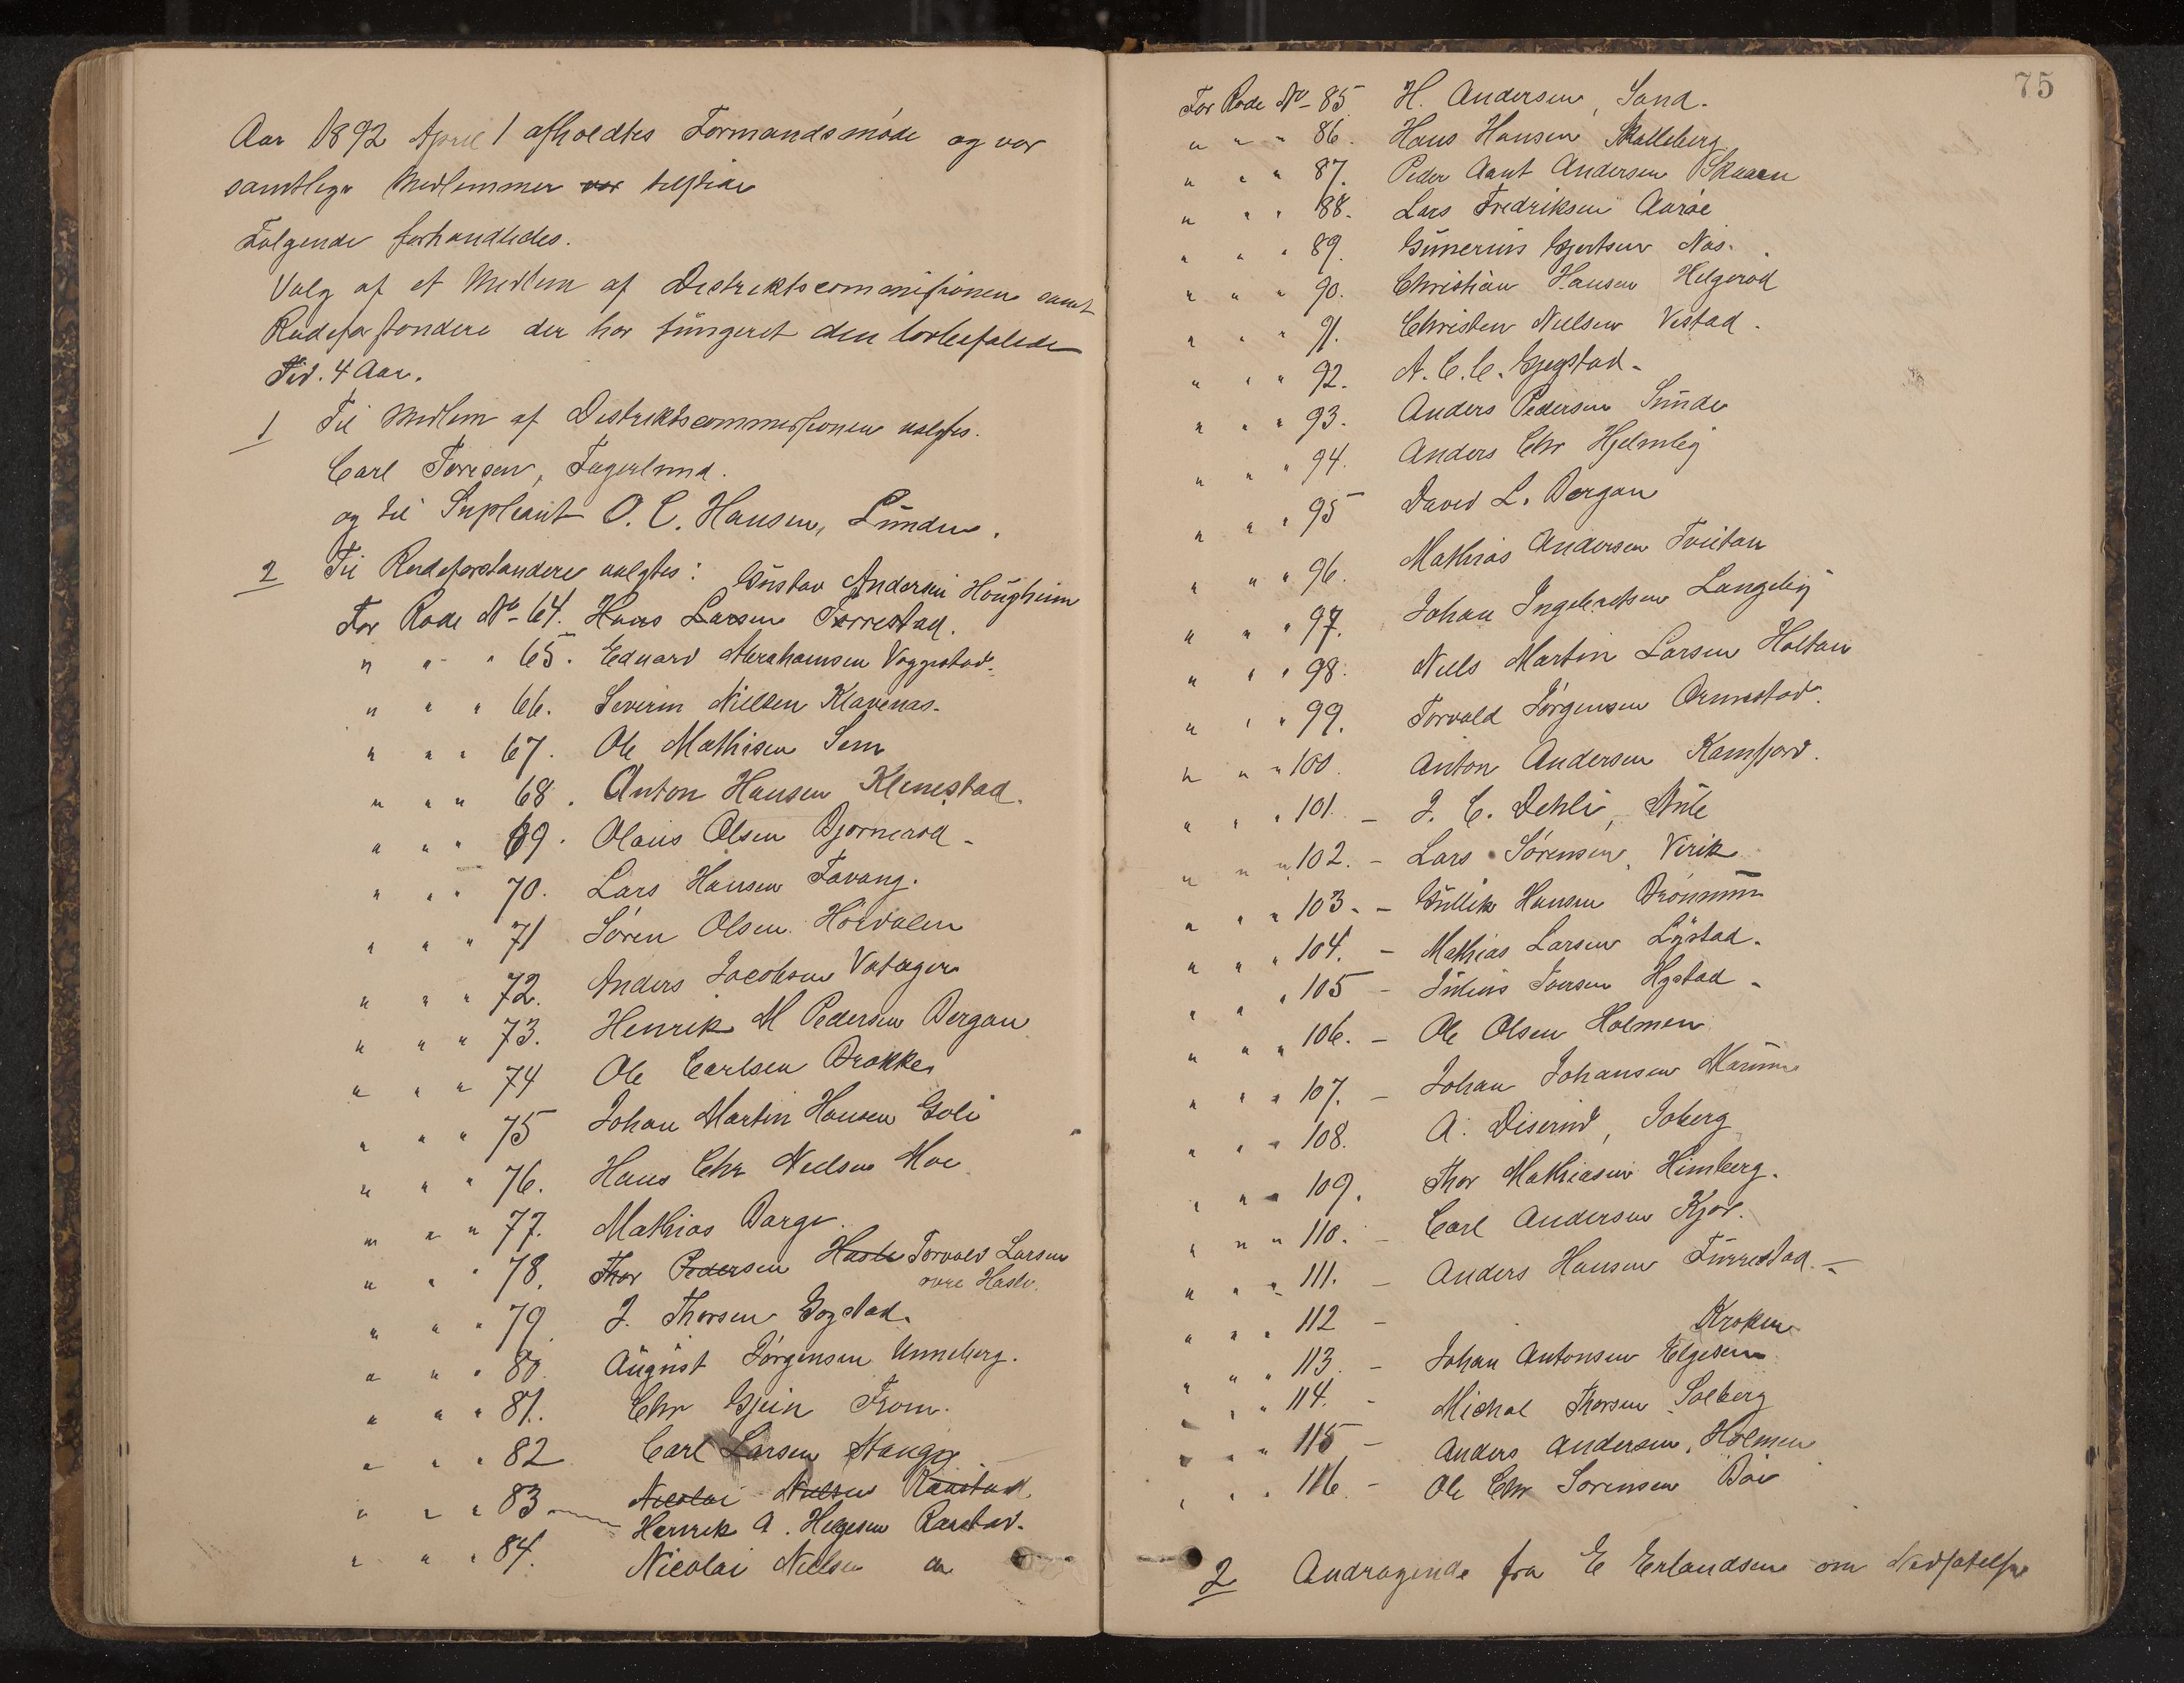 Aar 1892 April 1 afholdtes Formandsmøde og var
samtlige Medlemmer var tilstede
Følgende forhandledes.
Valg af et Medlem af Distriktscommisionen samt
Rodeforstandere der har fungeret den lovbefalede
Tid. 4 Aar.
1 Til Medlem af Distriktscommissionen valgtes.
Carl Toresen, Fagerlund.
og til Supleant O. C. Hansen, Lunden.
2 Til Rodeforstandere valgtes: Gustav Andersen Hougheim
For Rode No 64. Hans Larsen Torrestad.
" " " 65. Edvard Abrahamsen Vaggestad.
" " " 66. Severin Nielsen Klavenas.
" " " 67. Ole Mathisen Sem
" " " 68. Anton Hansen Klinestad.
" " " 69. Olaus Olsen Bjornerod
" " " 70. Lars Hansen Tavang.
" " " 71 Søren Olsen Hørdalen
" " " 72. Anders Jacobsen Vatager
" " " 73. Henrik M Pedersen Bergan
" " " 74 Ole Carlsen Brokke
" " " 75 Johan Martin Hansen Goli
" " " 76. Hans Chr Nielsen Moe
" " " 77. Mathias Barge.
" " " 78. Thor Pedersen Hasle Torvald Larsen
ovre Hasle.
" " " 79. J. Thorsen Gogstad.
" " " 80. August Jørgensen Unneberg.
" " " 81. Chr Gjein From.
" " " 82 Carl Larsen Hauge
" " " 83 Nicolai Nielsen Raastad.
Henrik A. Helgesen Raastad.
" " " 84. Nicolai Nielsen
75
For Rode No 85 H. Andersen, Sand.
" " " 86. Hans Hansen Skalleberg
" " " 87. Peder Aant Andersen Skaaen
" " " 88. Lars Fredriksen Aarøe
" " " 89. Gunerius Gjertsen Nas.
" " " 90. Christian Hansen Helgerød
" " " 91. Christen Nielsen Vestad.
" " " 92. A. C. C. Gjegstad.
" " " 93. Anders Pedersen Sunde
" " " 94. Anders Chr Hjelmlig
" " " 95 David L. Bergan
" " " 96. Mathias Andersen Tveitan
" " " 97. Johan Ingebretsen Langelig
" " " 98. Niels Martin Larsen Holtan
" " " 99. Torvald Jørgensen Ormestad.
" " " 100. Anton Andersen Kamfjord.
" " " 101. - J. C. Dehli, Aule
" " " 102. - Lars Sørensen, Virik
" " " 103. - Gullik Hansen Brönnum
" " " 104. - Mathias Larsen Lystad.
" " " 105 - Julius Iversen Hystad.
" " " 106. - Ole Olsen Holmen
" " " 107. - Johan Johansen Marum
" " " 108. A. Diserud, Soberg
" " " 109. Thor Mathiasen Himberg.
" " " 110. - Carl Andersen Kjær.
" " " 111. - Anders Hansen Furrestad.
" " " 112 - Kroken
" " " 113. - Johan Antonsen Elgesem
" " " 114. - Michal Thorsen Solberg
" " " 115 - Anders Andersen, Holmen
" " " 116. - Ole Chr Sorensen Bøe
2 Andragende fra E Erlandsen om Nedsatelse